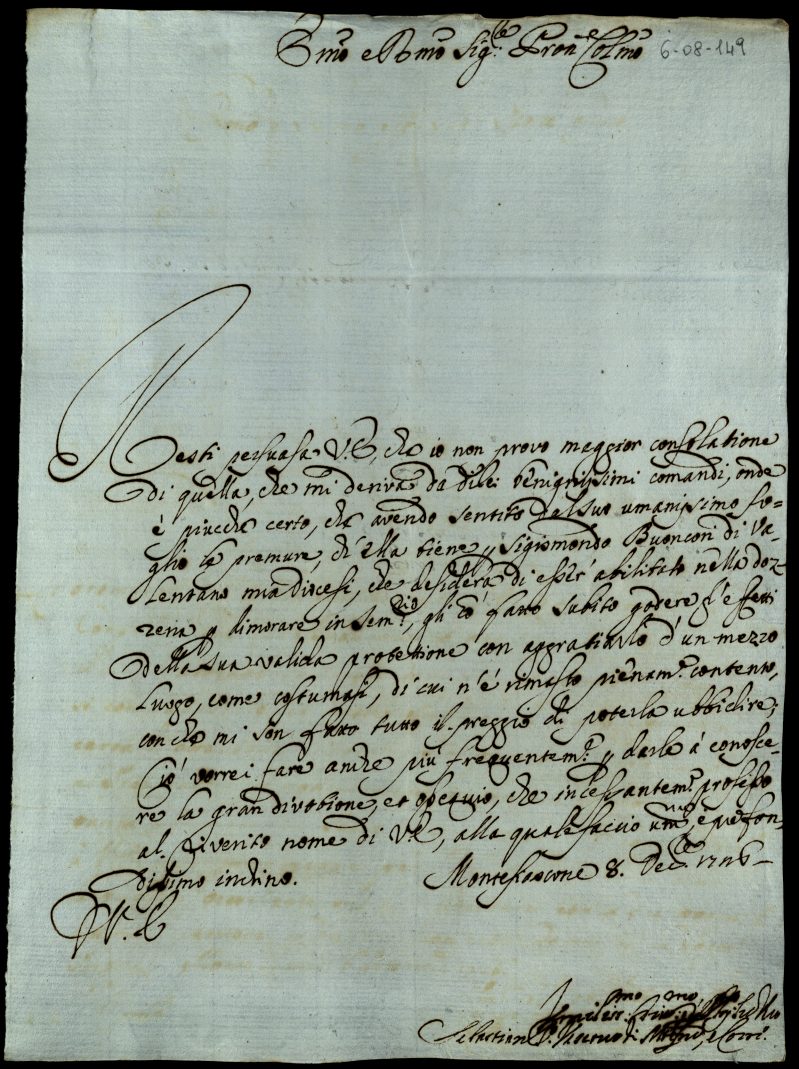 Emo e Rmo Sigre Pron Colmo 6-08-149
Resti persuasa V. E., che io non provo maggior consolatione
di quella, che mi deriva da di lei benignissimi comandi, onde
è piucche certo, che avendo sentito dal suo umanissimo fo=
glio le premure, ch'ella tiene p Sigismondo Buonconi di Va=
lentano mia diocesi, che desidera di esser' abilitato nella doz=
zena p dimorare in Semrio, gli hò fatto subito godere gl'effetti
della sua valida protettione con aggratiarlo d'un mezzo
luogo, come costumasi, di cui n'è rimasto pienamte contento,
con che mi son fatto tutto il preggio di poterla ubbidire;
Ciò vorrei fare anche più frequentemte p darle à conosce-
re la gran divotione, et ossequio, che incessantemte professo
al riverito nome di V. E., alla quale faccio umo, e profon=
dissimo inchino.
Montefiascone 8. Dece 1716
D V. E.
Sebastian